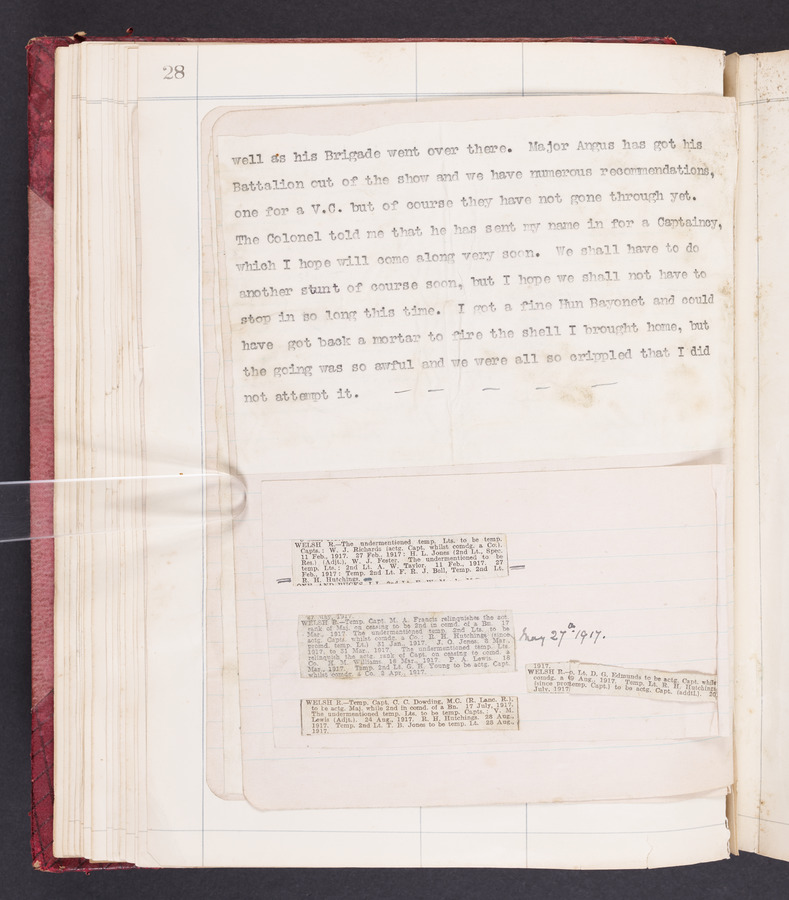 28
well as his Brigade went over there. Major Angus has got his
Battalion out of the show and we have numerous recommendations,
one for a V.C. but of course they have not gone through yet.
The Colonel told me that he has sent my name in for a Captaincy,
which I hope will come along very soon. We shall have to do
another stunt of course soon, but I hope we shall not have to
stop in so long this time. I got a fine Hun Bayonet and could
have got back a mortar to fire the shell I brought home, but
the going was so awful and we were all so crippled that I did
not attempt it. — — — — —
WELSH R.—The undermentioned temp. Lts. to be temp.
Capts.: W. J. Richards (actg. Capt. whilst comdg. a Co.).
11 Feb., 1917. 27 Feb., 1917: H. L. Jones (2nd Lt., Spec.
Res.) (Adjt.), W. J. Foster. The undermentioned to be
temp. Lts.: 2nd Lt. A. W. Taylor. 11 Feb., 1917. 27
Feb., 1917: Temp. 2nd Lt. F. R. J. Bell, Temp. 2nd Lt.
R. H. Hutchings.
WELSH R.—Temp. Capt. M. A. Francis relinquishes the act.
rank of Maj. on ceasing to be 2nd in comd. of a Bn. 17
Mar., 1917. The undermentioned temp. 2nd Lts. to be
actg. Capts. whilst comdg. a Co.: R. H. Hutchings (since
promd. temp. Lt.) 31 Jan., 1917. J. O. Jones. 8 Mar.,
1917, to 31 Mar., 1917. The undermentioned temp. Lts.
relinquish the actg. rank of Capt. on ceasing to comd. a
Co. H. M. Williams. 18 Mar., 1917. P. A. Lewis. 18
Mar., 1917. Temp. 2nd Lt. G. R. Young to be actg. Capt.
whilst comdg. a Co. 3 Apr., 1917.
May 27th 1917.
1917.
WELSH R.— Lt. D. G. Edmunds to be actg. Capt. while
comdg. a Aug., 1917. Temp. Lt. R. H. Hutchings
(since temp. Capt.) to be actg. Capt. (addtl.). 20
July, 1917
WELSH R.—Temp. Capt. C. C. Dowding, M.C. (R. Lanc. R.),
to be actg. Maj. while 2nd in comd. of a Bn. 17 July, 1917.
The undermentioned temp. Lts. to be temp. Capts.: V. M.
Lewis (Adjt.). 24 Aug., 1917. R. H. Hutchings. 28 Aug.,
1917. Temp. 2nd Lt. T. B. Jones to be temp. Lt. 28 Aug.,
1917.